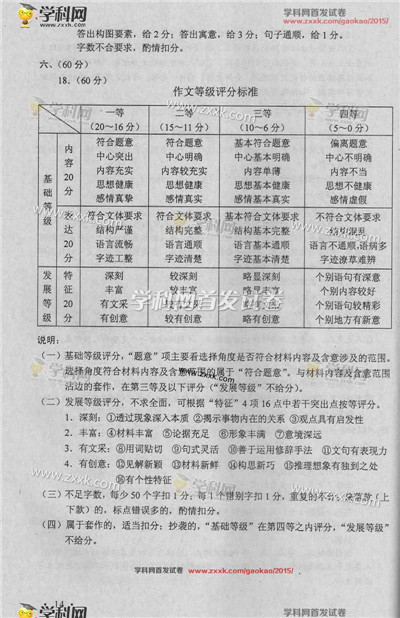 学科网
www.zxxk.com
学科网首发试卷
www.zxxk.com/gaokao/2015/
答出构图要素，给2分；答出寓意，给3分；句子通顺，给1分。
字数不合要求，酌情扣分。
六、(60分)
18.(60分)
作文等级评分标准
一等 二等 三等 四等
(20～16分) (15～11分) (10～6分) (5～0分)
基础等级
内容20分
符合题意 符合题意 基本符合题意 偏离题意
中心突出 中心明确 中心基本明确 中心不明确
内容充实 内容较充实 内容单薄 内容不当
思想健康 思想健康 思想基本健康 思想不健康
感情真挚 感情真实 感情基本真实 感情虚假
表达20分
符合文体要求 符合文体要求 基本符合文体要求 不符合文体要求
结构严谨 结构完整 结构基本完整 结构混乱
语言流畅 语言通顺 语言基本通顺 语言不通顺,语病多
字迹工整 字迹清楚 字迹基本清楚 字迹潦草难辨
发展等级
特征20分
深刻 较深刻 略显深刻 个别语句有深意
丰富 较丰富 略显丰富 个别内容较好
有文采 较有文采 略有文采 个别语句较精彩
有创意 较有创意 略有创意 个别地方有新意
学科网首发试卷
说明：
(一)基础等级评分，“题意”项主要看选择角度是否符合材料内容及含意涉及的范围。
选择角度符合材料内容及含意范围的属于“符合题意”。与材料内容及含意范围
沾边的套作，在第三等及以下评分(“发展等级”不给分)。
(二)发展等级评分，不求全面，可根据“特征”4项16点中若干突出点按等评分。
1．深刻：①透过现象深入本质 ②揭示事物内在的关系 ③观点具有启发性
2．丰富：④材料丰富 ⑤论据充足 ⑥形象丰满 ⑦意境深远
3．有文采：⑧用词贴切 ⑨句式灵活 ⑩善于运用修辞手法 ⑪文句有表现力
4．有创意：⑫见解新颖 ⑬材料新鲜 ⑭构思新巧 ⑮推理想象有独到之处
⑯有个性特征
(三)不足字数，每少50个字扣1分；每1个错别字扣1分，重复的不计；
款)的，标点错误多的，酌情扣分。
(四)属于套作的，适当扣分；抄袭的，“基础等级”在第四等之内评分，“发展等级”
不给分。
学科网首发试卷
www.zxxk.com/gaokao/2015/
学科网
www.zxxk.com
学科网首发试卷